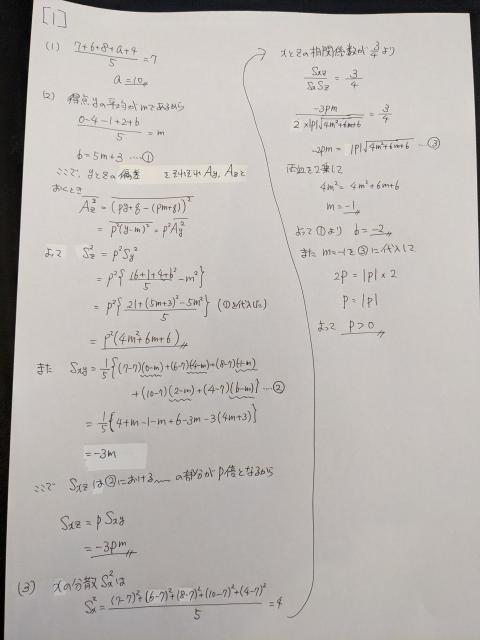 [1]
(1) (7+6+8+a+4)/5 = 7
a = 10
(2) 得点yの平均がmであるから
(0-4-1+2+b)/5 = m
b = 5m+3 ‥‥①
ここで、yとzの偏差をそれぞれAy, Azと
おくとき
Az² = (py+q-(pm+q))²
= p²(y-m)² = p²Ay²
よって Sz² = p²Sy²
= p²{(16+1+4+b²)/5 - m²}
= p²{(21+(5m+3)²-5m²)/5} (①を代入した)
= p²(4m²+6m+6)
また Sxy = 1/5{(7-7)(0-m)+(6-7)(-4-m)+(8-7)(-1-m)
+(10-7)(2-m)+(4-7)(b-m)} ‥‥②
= 1/5{4+m-1-m+6-3m-3(4m+3)}
= -3m
ここで Sxzは②における〰の部分がp倍となるから
Sxz = pSxy
= -3pm
(3) xの分散Sx²は
Sx² = ((7-7)²+(6-7)²+(8-7)²+(10-7)²+(4-7)²)/5 = 4
xとzの相関係数が3/4より
Sxz/SxSz = 3/4
-3pm/(2×|p|√(4m²+6m+6)) = 3/4
-2pm = |p|√(4m²+6m+6) ‥‥③
両辺を2乗して
4m² = 4m²+6m+6
m = -1
よって①より b = -2
また m=-1を③に代入して
2p = |p|×2
p = |p|
よって p>0